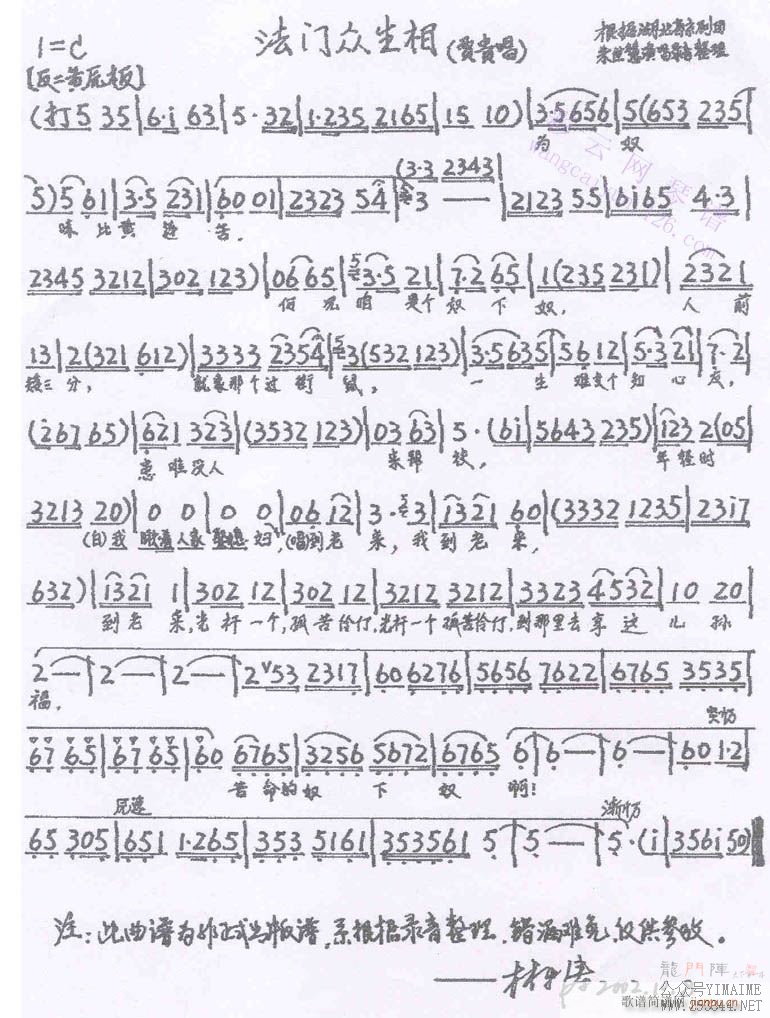 1=C 法门众生相(贾贵唱) 根据湖北省京剧团
朱世慧演唱录音整理
[反二黄原板]
(打5 35|6·i 63|5·32|1·235 2165|15 10)|3·5656|5(653 235|
为 奴
5)5 61|3·5 231|60 01|2323 54|3 —|2123 55|6i65 4·3|
(3·3 2343|
味比黄连苦,
2345 3212|302 123)|06 65|3·5 21|7·2 65|1(235 231)|2321
何况咱是个奴下奴, 人前
13|2(321 612)|3333 2354|3(532 123)|3·5635|56 12|5·3 21|7·2
矮三分, 就象那个过街鼠, 一生难交个知心友,
(267 65)|621 323|(3532 123)|03 63|5·(6i|5643 235)|123 2(05|
患难没人 来帮扶, 年轻时
3213 20)|0 0|0 0|06 12|3·3|1321 60|(3332 1235|2317
(白)我 人家 妇,(唱)到老来,我到老来,
632)|1321 1|302 12|302 12|3212 3212|3323 4532|10 20
到老来,光杆一个,孤苦伶仃,光杆一个孤苦伶仃,到那里去享这儿孙
2—|2—|2—|2 53 2317|60 6276|5656 7622|6765 3535|
福,
突切
67 65|67 65|60 6765|3256 5672|6765 6|6—|6—|60 1·2|
苦命的奴下奴啊!
原速 渐切
65 305|651 1·265|353 5161|353561 5|5—|5·(i|356i 50)‖
注:此曲谱为非正式出版谱,系根据录音整理,错漏难免,仅供参考。
——林涛
2002.1
龍門陣
公众号YIMAIME
歌谱简谱网 www.jianpu.cn
www.253844.NET